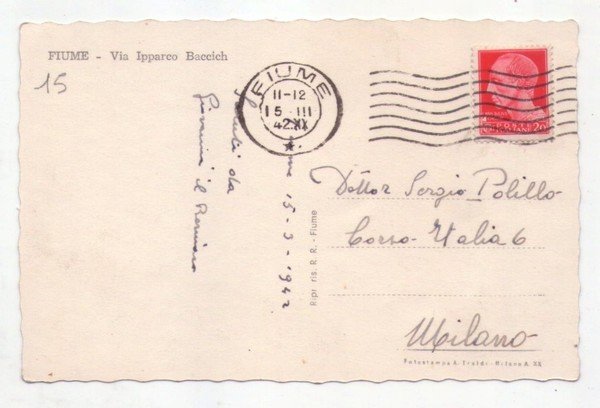 FIUME - Via Ipparco Baccich
15
FIUME
11-12
15 III
42 XX
Saluti da
Giovanni il
15-3-1942
Dottor Sergio Polillo
Corso Italia 6
Milano
Ripr. ris. R. R. - Fiume
Fotostampa A. Traldi - Milano A. XX